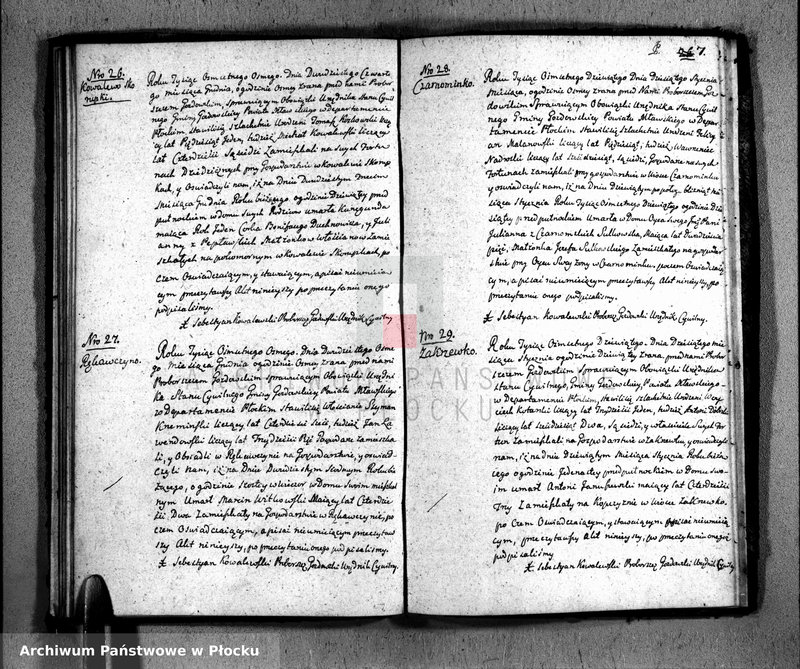 Nro 26.
Kowalewo Sko
rupki.
Roku Tysiąc Osmsetnego Osmego. Dnia Dwudziestego Czwarte
go miesiąca Grudnia, ogodzinie Osmey zrana przed nami Probo
szczem Gozdowskim, sprawuiącym Obowiązki Urzędnika Stanu Cywil
nego Gminy Gozdowskiey Powiatu Mławskiego w Departamencie
Płockim, stawili się Szlachetnie Urodzeni Tomasz
lat Pięćdziesiąt Jeden, tudzież Kowalewski liczący
lat Czterdzieści
nach Dziedzicznych przy Gospodarstwie w Kowalewie Skorup
kach, y Oświadczyli nam, iż na Dniu Dwudziestym Trzecim
Miesiąca Grudnia Roku bieżącego ogodzinie Dziewiątey przed
południem w domu swych Rodziców umarła Kunegunda
maiąca Rok Jeden Corka Bonifacego Duchnowskiego, y Juli
anny z Małżonkow
szkałych na połowionym w Kowalewie Skorupkach, po
czem Oświadczaiącym, y stawaiącym, a pisać nieumieią
cym przeczytawszy Akt ninieyszy po przeczytaniu onego
podpisaliśmy.
X. Sebestyan Kowalewski Proboszcz Gozdowski Urzędnik Cywilny.
Nro 27.
Rękawczyno.
Roku Tysiąc Osmsetnego Osmego, Dnia Dwudziestego Osme
go Dnia Grudnia ogodzinie Osmey zrana przed nami
Proboszczem Gozdowskim sprawuiącym Obowiązki Urzędni
ka Stanu Cywilnego Gminy Gozdowskiey Powiatu Mławskiego
w Departamencie Płockim stawili się Włościanie Szyman
liczący lat Czterdzieści sześć, tudzież Jan
liczący lat Trzydzieści Pięć Gospodarze Zamieszka
li, y Obsiadli w Rękawczynie na Gospodarstwie, y oświad
czyli nam, iż na Dniu Dwudziestym Siodmym Roku bie
żącego, o godzinie szostey wieczor w Domu swoim mieszkal
nym Umarł Marcin Witkowski Maiący lat Czterdzie
ści Dwa Zamieszkały na Gospodarstwie w Rękawczynie, po
czem Oświadczaiącym, a pisać nieumieiącym przeczytaw
szy Akt ninieyszy, po przeczytaniu onego podpisaliśmy.
X. Sebestyan Kowalewski Proboszcz Gozdowski Urzędnik Cywilny.
267.
Nro 28.
Czarnominko.
Roku Tysiąc Osmsetnego Dziewiątego Dnia Dziesiątego Stycznia
Miesiąca, ogodzinie Osmey zrana przed Nami Proboszczem Go
zdowskim Sprawuiącym Obowiązki Urzędnika Stanu Cywil
nego Gminy Gozdowskiey Powiatu Mławskiego w Depar
tamencie Płockim Stawili się Szlachetnie Urodzeni Felicy
an Malanowski liczący lat Pięćdziesiąt, tudzież Wawrzeniec
Nadrolski liczący lat sześćdziesiąt, Sąsiedzi, Gospodarze na swych
Fortunach zamieszkali przy gospodarstwie w Wsi Czarnominku
y oświadczyli nam, iż na Dniu Dziewiątym
siąca Stycznia Roku Tysiąc Osmsetnego Dziewiątego ogodzinie Dzie
siątey przed południem Umarła w Domu Oyca Swego Jmć Pani
Julianna z Czarnomskich Sulkowska, Maiąca lat Dwadzieścia
pięć, Małżonka Jozefa Sulkowskiego Zamieszkałego na gospodar
stwie przy Oycu Swey żony w Czarnominku, poczem Oświadczaią
cym, a pisać nieumieiącym przeczytawszy Akt ninieyszy, po
przeczytaniu onego podpisaliśmy.
X. Sebestyan Kowalewski Proboszcz Gozdowski Urzędnik Cywilny.
Nro 29.
Zakrzewko.
Roku Tysiąc Osmsetnego Dziewiątego, Dnia Dziesiątego mie
siąca Stycznia ogodzinie Dziewiątey zrana, przed nami Probo
szczem Gozdowskim, sprawuiącym Obowiązki Urzędnika
Stanu Cywilnego, Gminy Gozdowskiey, Powiatu Mławskiego
w Departamencie Płockim, stawili się Szlachetnie Urodzeni Woy
ciech liczący lat Trzydzieści Jeden, tudzież Antoni
liczący lat sześćdziesiąt Dwa, Sąsiedzi, y
Zamieszkali na Gospodarstwie w Zakrzewku, y oświadczyli
nam, iż na Dniu Dziewiątym Miesiąca Stycznia Roku bieżą
cego ogodzinie Jedenastey przed południem w Domu swo
im umarł Antoni maiący lat Czterdzieści
Trzy Zamieszkały na w Wsi Zakrzewko.
po czem Oświadczaiącym, y stawaiącym, a pisać nieumieią
cym, przeczytawszy Akt ninieyszy, po przeczytaniu onegoż
podpisaliśmy
X. Sebestyan Kowalewski Proboszcz Gozdowski Urzędnik Cywilny.
ARCHIWUM PAŃSTWOWE
W PŁOCKU
Archiwum Państwowe w Płocku